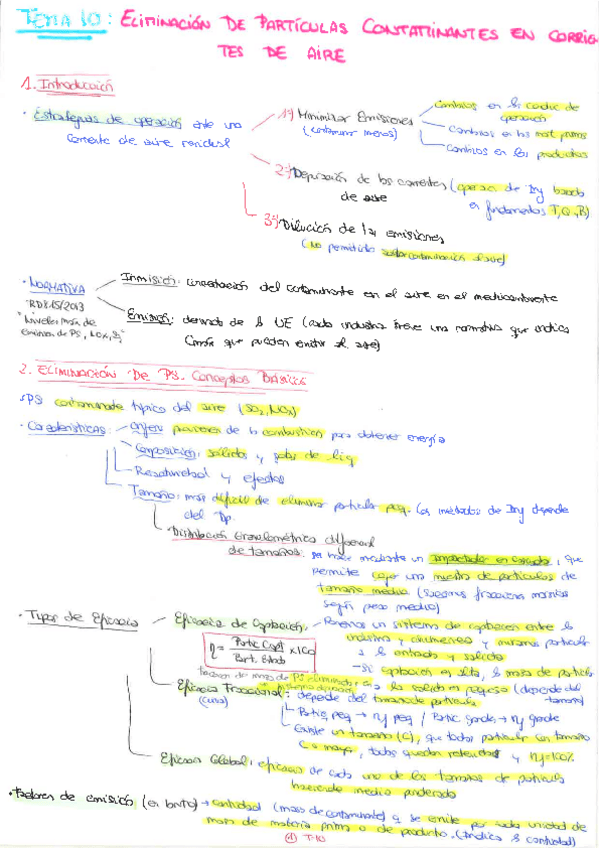 TEMA 10: ELIMINACIÓN DE PARTÍCULAS CONTAMINANTES EN CORRIEN
TES DE AIRE
1. Introducción
· Estrategias de operación ante una
corriente de aire residual
1º) Minimizar Emisiones
(contaminar menos)
Cambios en la conduc de
operación
Cambios en las mat primas
Cambios en los productos
2º) Depuración de las corrientes (operac de Ing basada
de aire
en fundamentos T, Q, B)
3º) Dilución de las emisiones
(No permitido
· NORMATIVA
RD 815/2013
"Niveles máx de
emisión de PS, NOx, S"
Inmisión: concentración del contaminante en el aire en el medioambiente
Emisión: derivado de la UE (cada industria tiene una normativa que indica
que pueden emitir al aire)
2. ELIMINACIÓN DE PS. Conceptos Básicos
PS contaminante típico del aire (SO2, NOx)
· Características:
Origen: provienen de la combustión para obtener energía
Composición: sólidos y gotas de liq
Reactividad y efectos
Tamaño: más difícil de eliminar partículas peq. Los métodos de Ing depende
del Dp.
Distribución Granulométrica diferencial
de tamaños: se hace mediante un impactador en cascada, que
permite coger una muestra de partículas de
tamaño medio (sacamos fracciones másicas
según peso medio)
· Tipos de Eficacia
Eficacia de Captación: Ponemos un sistema de captación entre la
industria y chimenea y miramos partículas
a la entrada y salida
η = Partic Capt / Part. Entrada x100
Si captación es alta, la masa de partícula
a la salida es pequeña (depende del
tamaño)
Eficacia Fraccional: depende del tamaño de partícula
(curva)
Partic peq → η peq / Partic grande → η grande
Existe un tamaño (C), que todas partículas con tamaño
C o mayor, todas quedan retenidas y η=100%
Eficacia Global: eficacia de cada uno de los tamaños de partícula
haciendo media ponderada
· Factores de emisión (en bruto) → cantidad (masa de contaminante) q se emite por cada unidad de
masa de materia prima o de producto. (Indica la cantidad)
① T-10